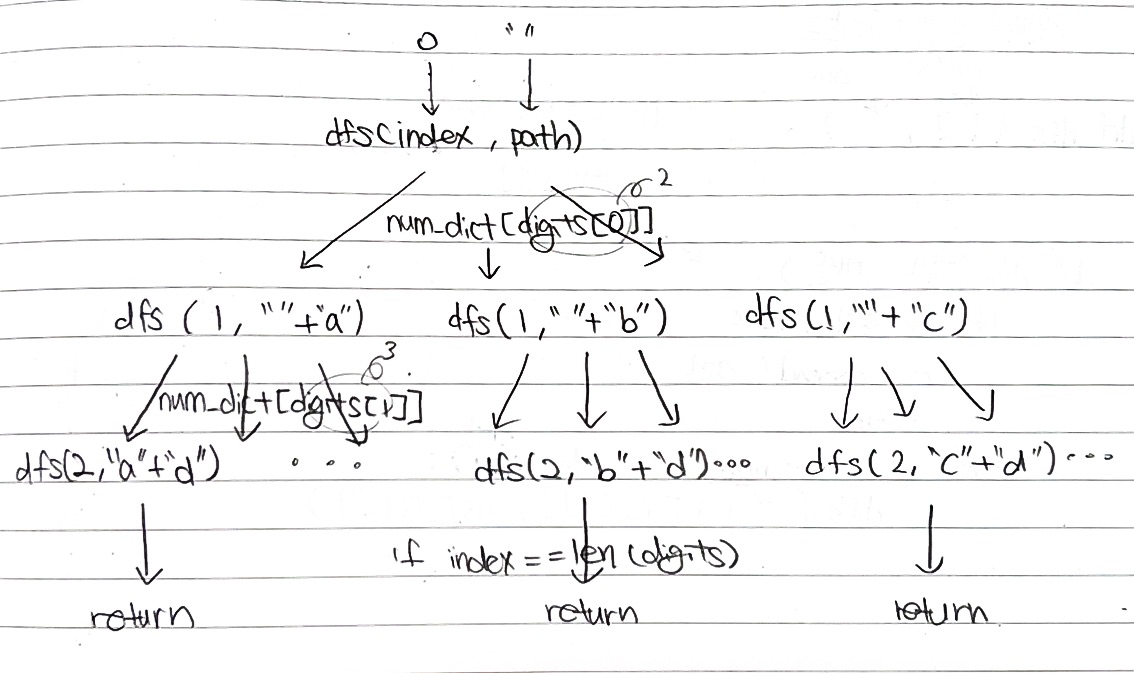 0 " "
dfs(index, path)
2
num_dict[digits[0]]
dfs (1, " "+"a") dfs(1, " "+"b") dfs(1, ""+ "c")
3
num_dict[digits[1]]
dfs(2, "a"+"d") ... dfs(2, "b"+"d")... dfs(2, "c"+"d")...
if index == len(digits)
return return return